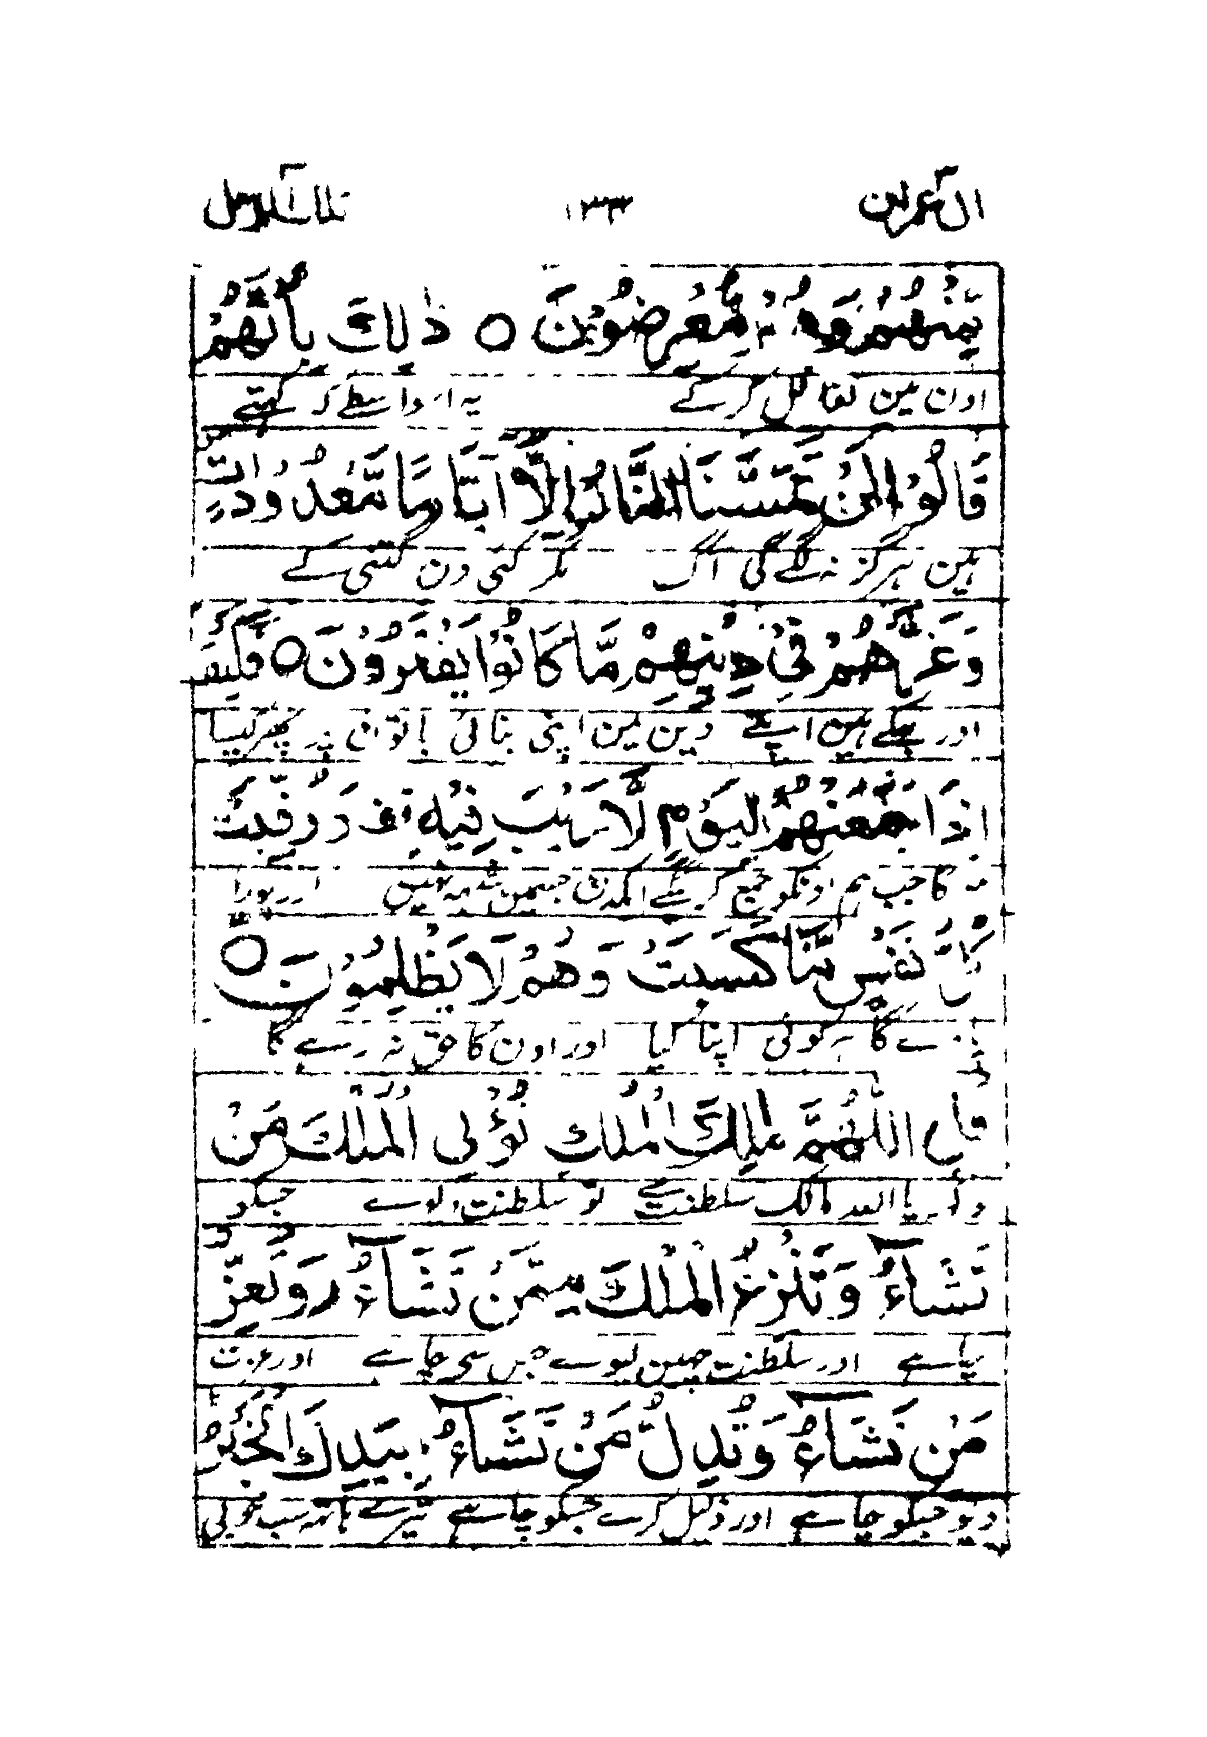 ال عمرٰن ۱۳۳ تلك الرسل
مِّنْهُمْ وَهُمْ مُّعْرِضُوْنَ ○ ذٰلِكَ بِاَنَّهُمْ
اون مین تغافل کر کے یہ اس واسطے کہ کہتے
قَالُوْا لَنْ تَمَسَّنَا النَّارُ اِلَّآ اَيَّامًا مَّعْدُوْدٰتٍ
ہین ہرگز نہ لگے گی آگ مگر کئی دن گنتی کے
وَغَرَّهُمْ فِيْ دِيْنِهِمْ مَّا كَانُوْا يَفْتَرُوْنَ ○ فَكَيْفَ
اور بہکے ہین اپنے دین مین اپنی بنائی باتوان پر پھر کیسا
اِذَا جَمَعْنٰهُمْ لِيَوْمٍ لَّا رَيْبَ فِيْهِ وَوُفِّيَتْ
ہوگا جب ہم اونکو جمع کرینگے اکدن جسمین شبہہ نہین اور پورا
كُلُّ نَفْسٍ مَّا كَسَبَتْ وَهُمْ لَا يُظْلَمُوْنَ ○
پاوے گا ہر کوئی اپنا کیا اور اون کا حق نہ رہے گا
قُلِ اللّٰهُمَّ مٰلِكَ الْمُلْكِ تُؤْتِي الْمُلْكَ مَنْ
یا اللہ مالک سلطنت کے تو سلطنت دیوے جسکو
تَشَآءُ وَتَنْزِعُ الْمُلْكَ مِمَّنْ تَشَآءُ وَتُعِزُّ
چاہے اور سلطنت چھین لیوے جس سی چاہے اور عزت
مَنْ تَشَآءُ وَتُذِلُّ مَنْ تَشَآءُ بِيَدِكَ الْخَيْرُ
دیو جسکو چاہے اور ذلیل کرے جسکو چاہے تیرے ہاتھ سب خوبی